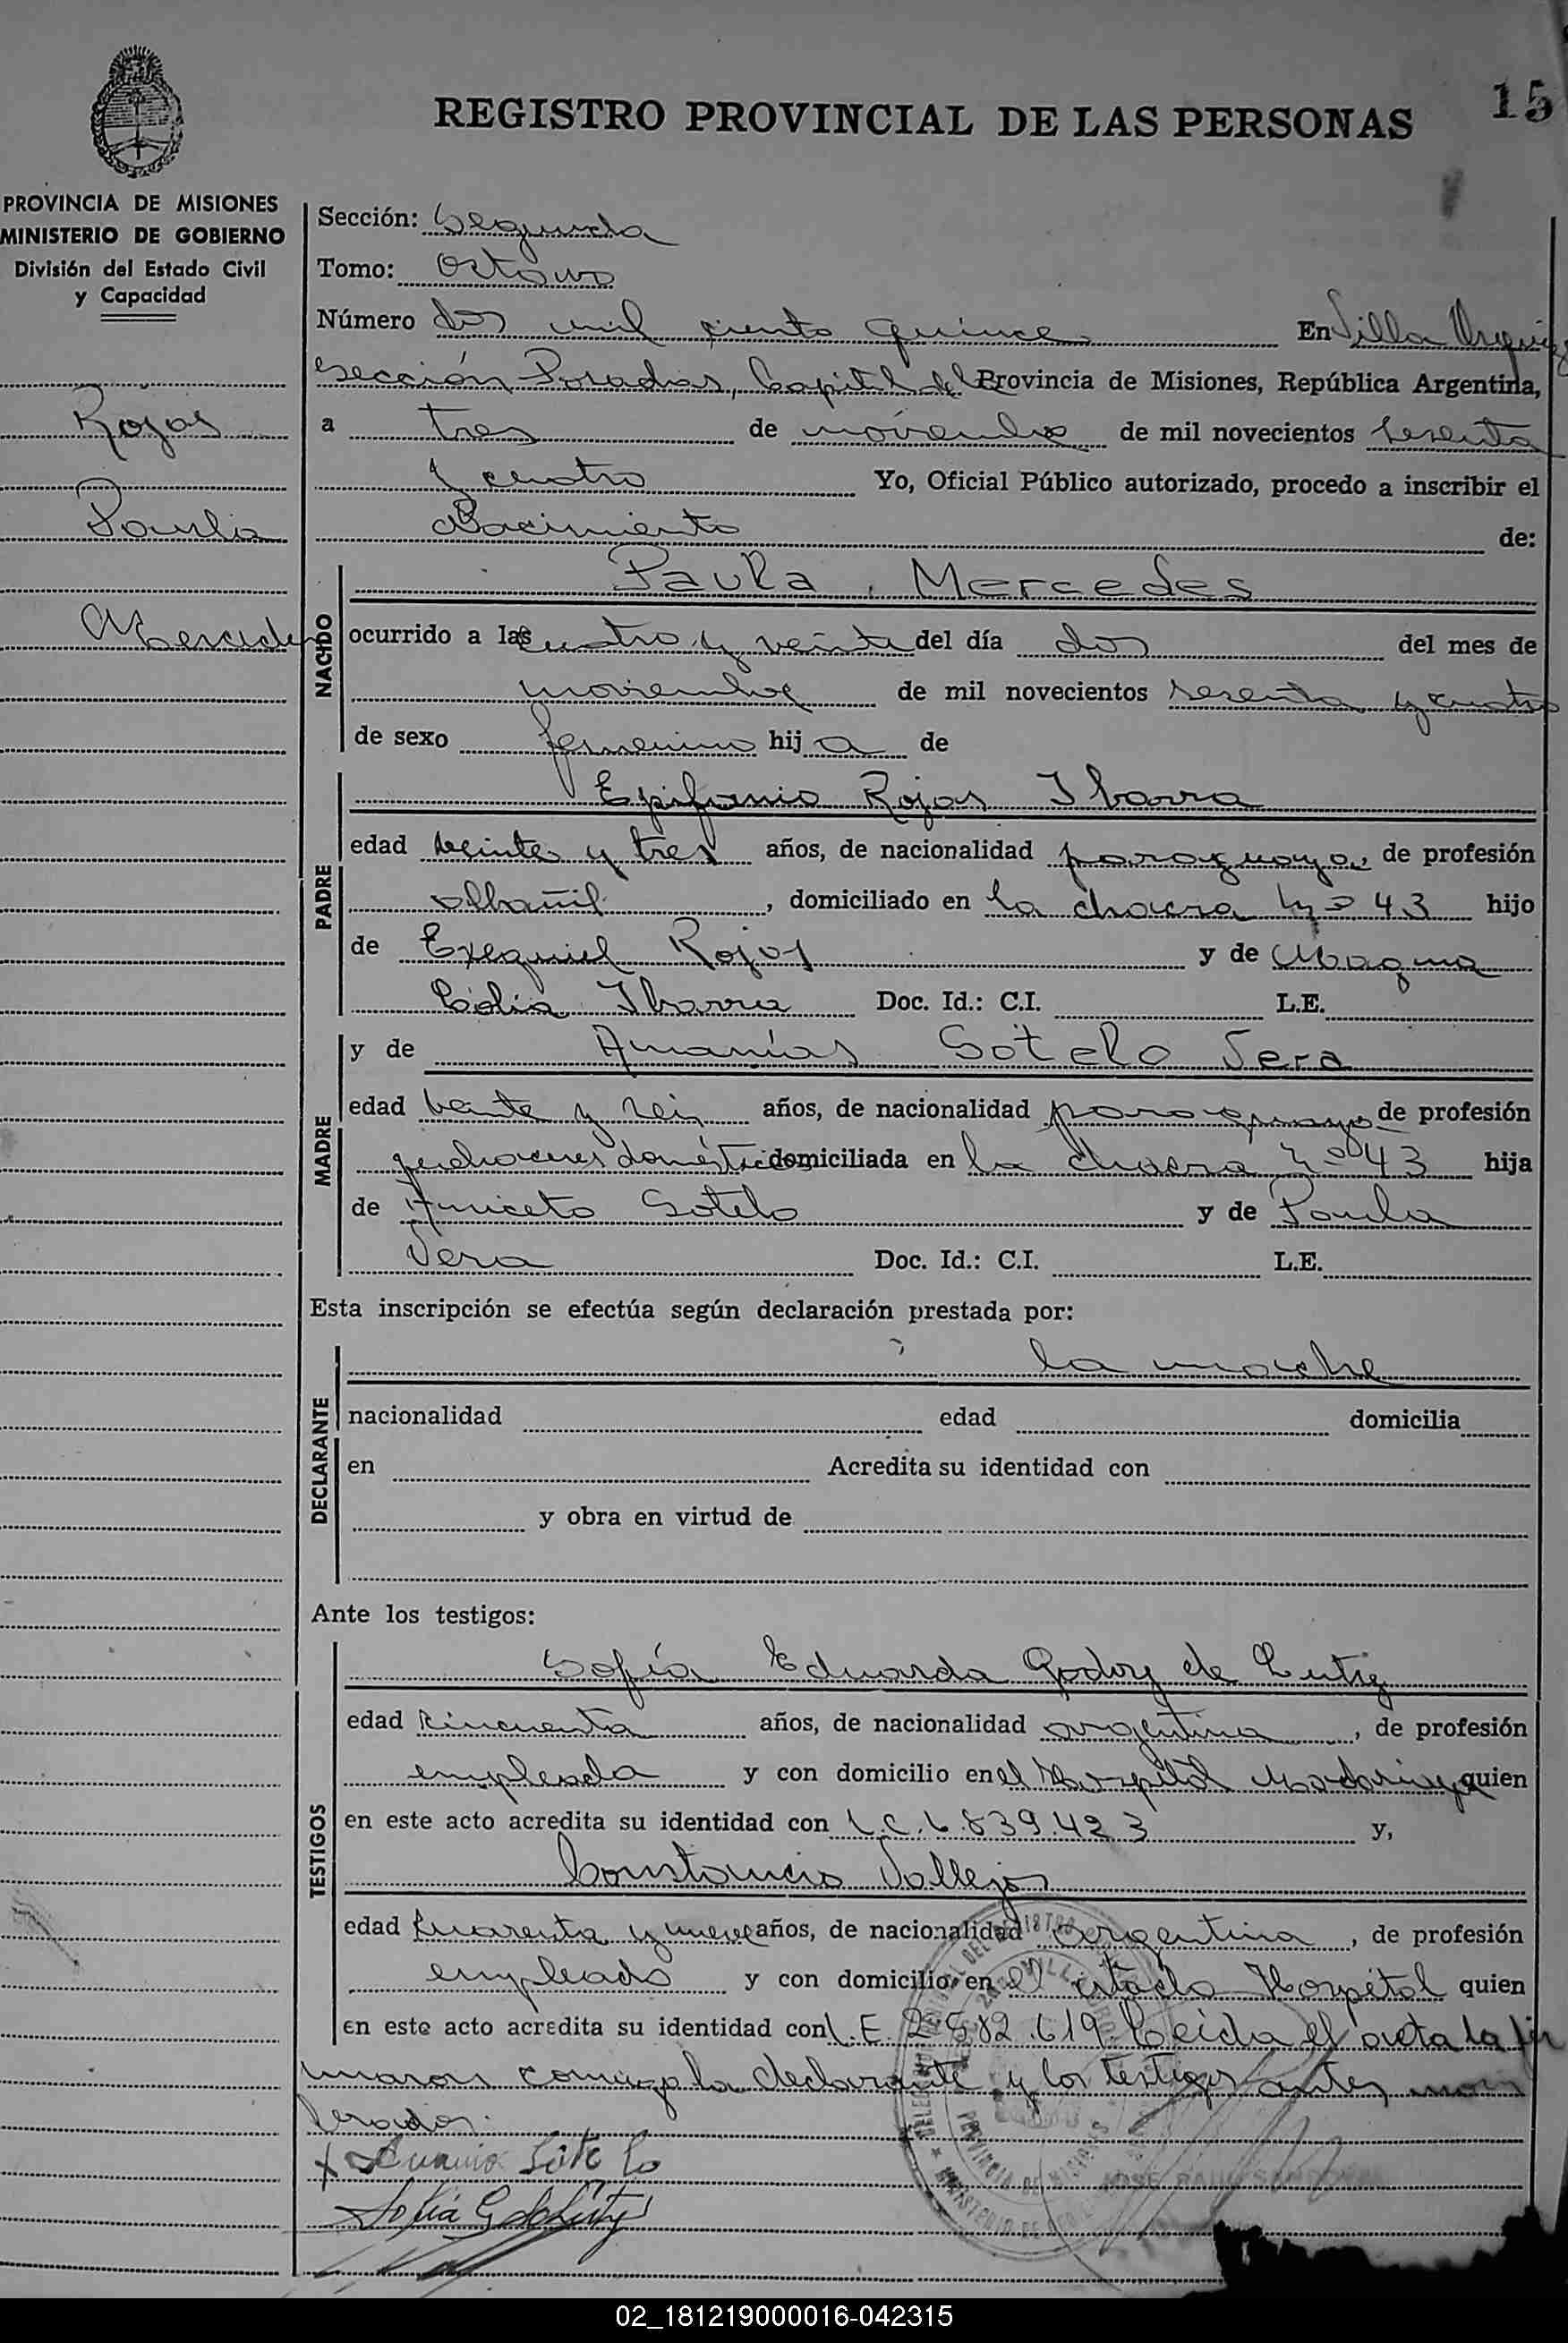 REGISTRO PROVINCIAL DE LAS PERSONAS
15
PROVINCIA DE MISIONES
MINISTERIO DE GOBIERNO
División del Estado Civil
y Capacidad
Rojas
Paula
Mercedes
Sección: Segunda
Tomo: Octavo
Número dos mil ciento quince En Villa Urquiza
Sección Posadas, Capital de Provincia de Misiones, República Argentina,
a tres de noviembre de mil novecientos sesenta
y cuatro Yo, Oficial Público autorizado, procedo a inscribir el
Nacimiento de:
NACIDO
Paula Mercedes
ocurrido a las cuatro y veinte del día dos del mes de
noviembre de mil novecientos sesenta y cuatro
de sexo femenino hij a de
PADRE
Epifanio Rojas Ibarra
edad veinte y tres años, de nacionalidad paraguaya, de profesión
albañil, domiciliado en la chacra Nº 43 hijo
de Exequiel Rojas y de
Ibarra Doc. Id.: C.I. L.E.
MADRE
y de Ananías Sotelo Vera
edad veinte y seis años, de nacionalidad paraguaya de profesión
quehaceres domésticos domiciliada en la chacra Nº 43 hija
de Aniceto Sotelo y de Paula
Vera Doc. Id.: C.I. L.E.
Esta inscripción se efectúa según declaración prestada por:
DECLARANTE
la madre
nacionalidad edad domicilia
en Acredita su identidad con
y obra en virtud de
Ante los testigos:
TESTIGOS
Sofía Eduarda Godoy de
edad cincuenta años, de nacionalidad argentina, de profesión
empleada y con domicilio en el Hospital Madariaga quien
en este acto acredita su identidad con L.C. 6.839.423 y,
Constancio Vallejos
edad cuarenta y nueve años, de nacionalidad argentina, de profesión
empleado y con domicilio en el citado Hospital quien
en este acto acredita su identidad con L.E. 2.582.619. Leida el acta la fir
maron conmigo la declarante y los testigos antes
02_181219000016-042315